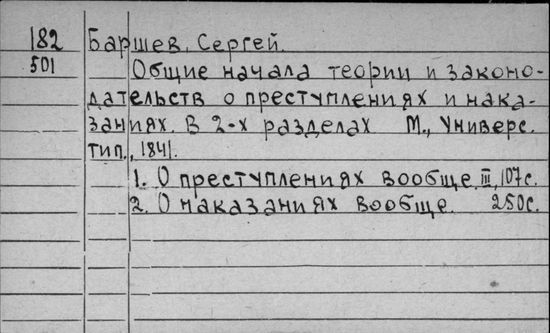 182 Баршев, Сергей.
501 Общие начала теории и законо-
дательств о преступлениях и нака-
заниях. В 2-х разделах М., Универс.
тип., 1841.
1. О преступлениях вообще. III, 107с.
2. О наказаниях вообще. 250с.